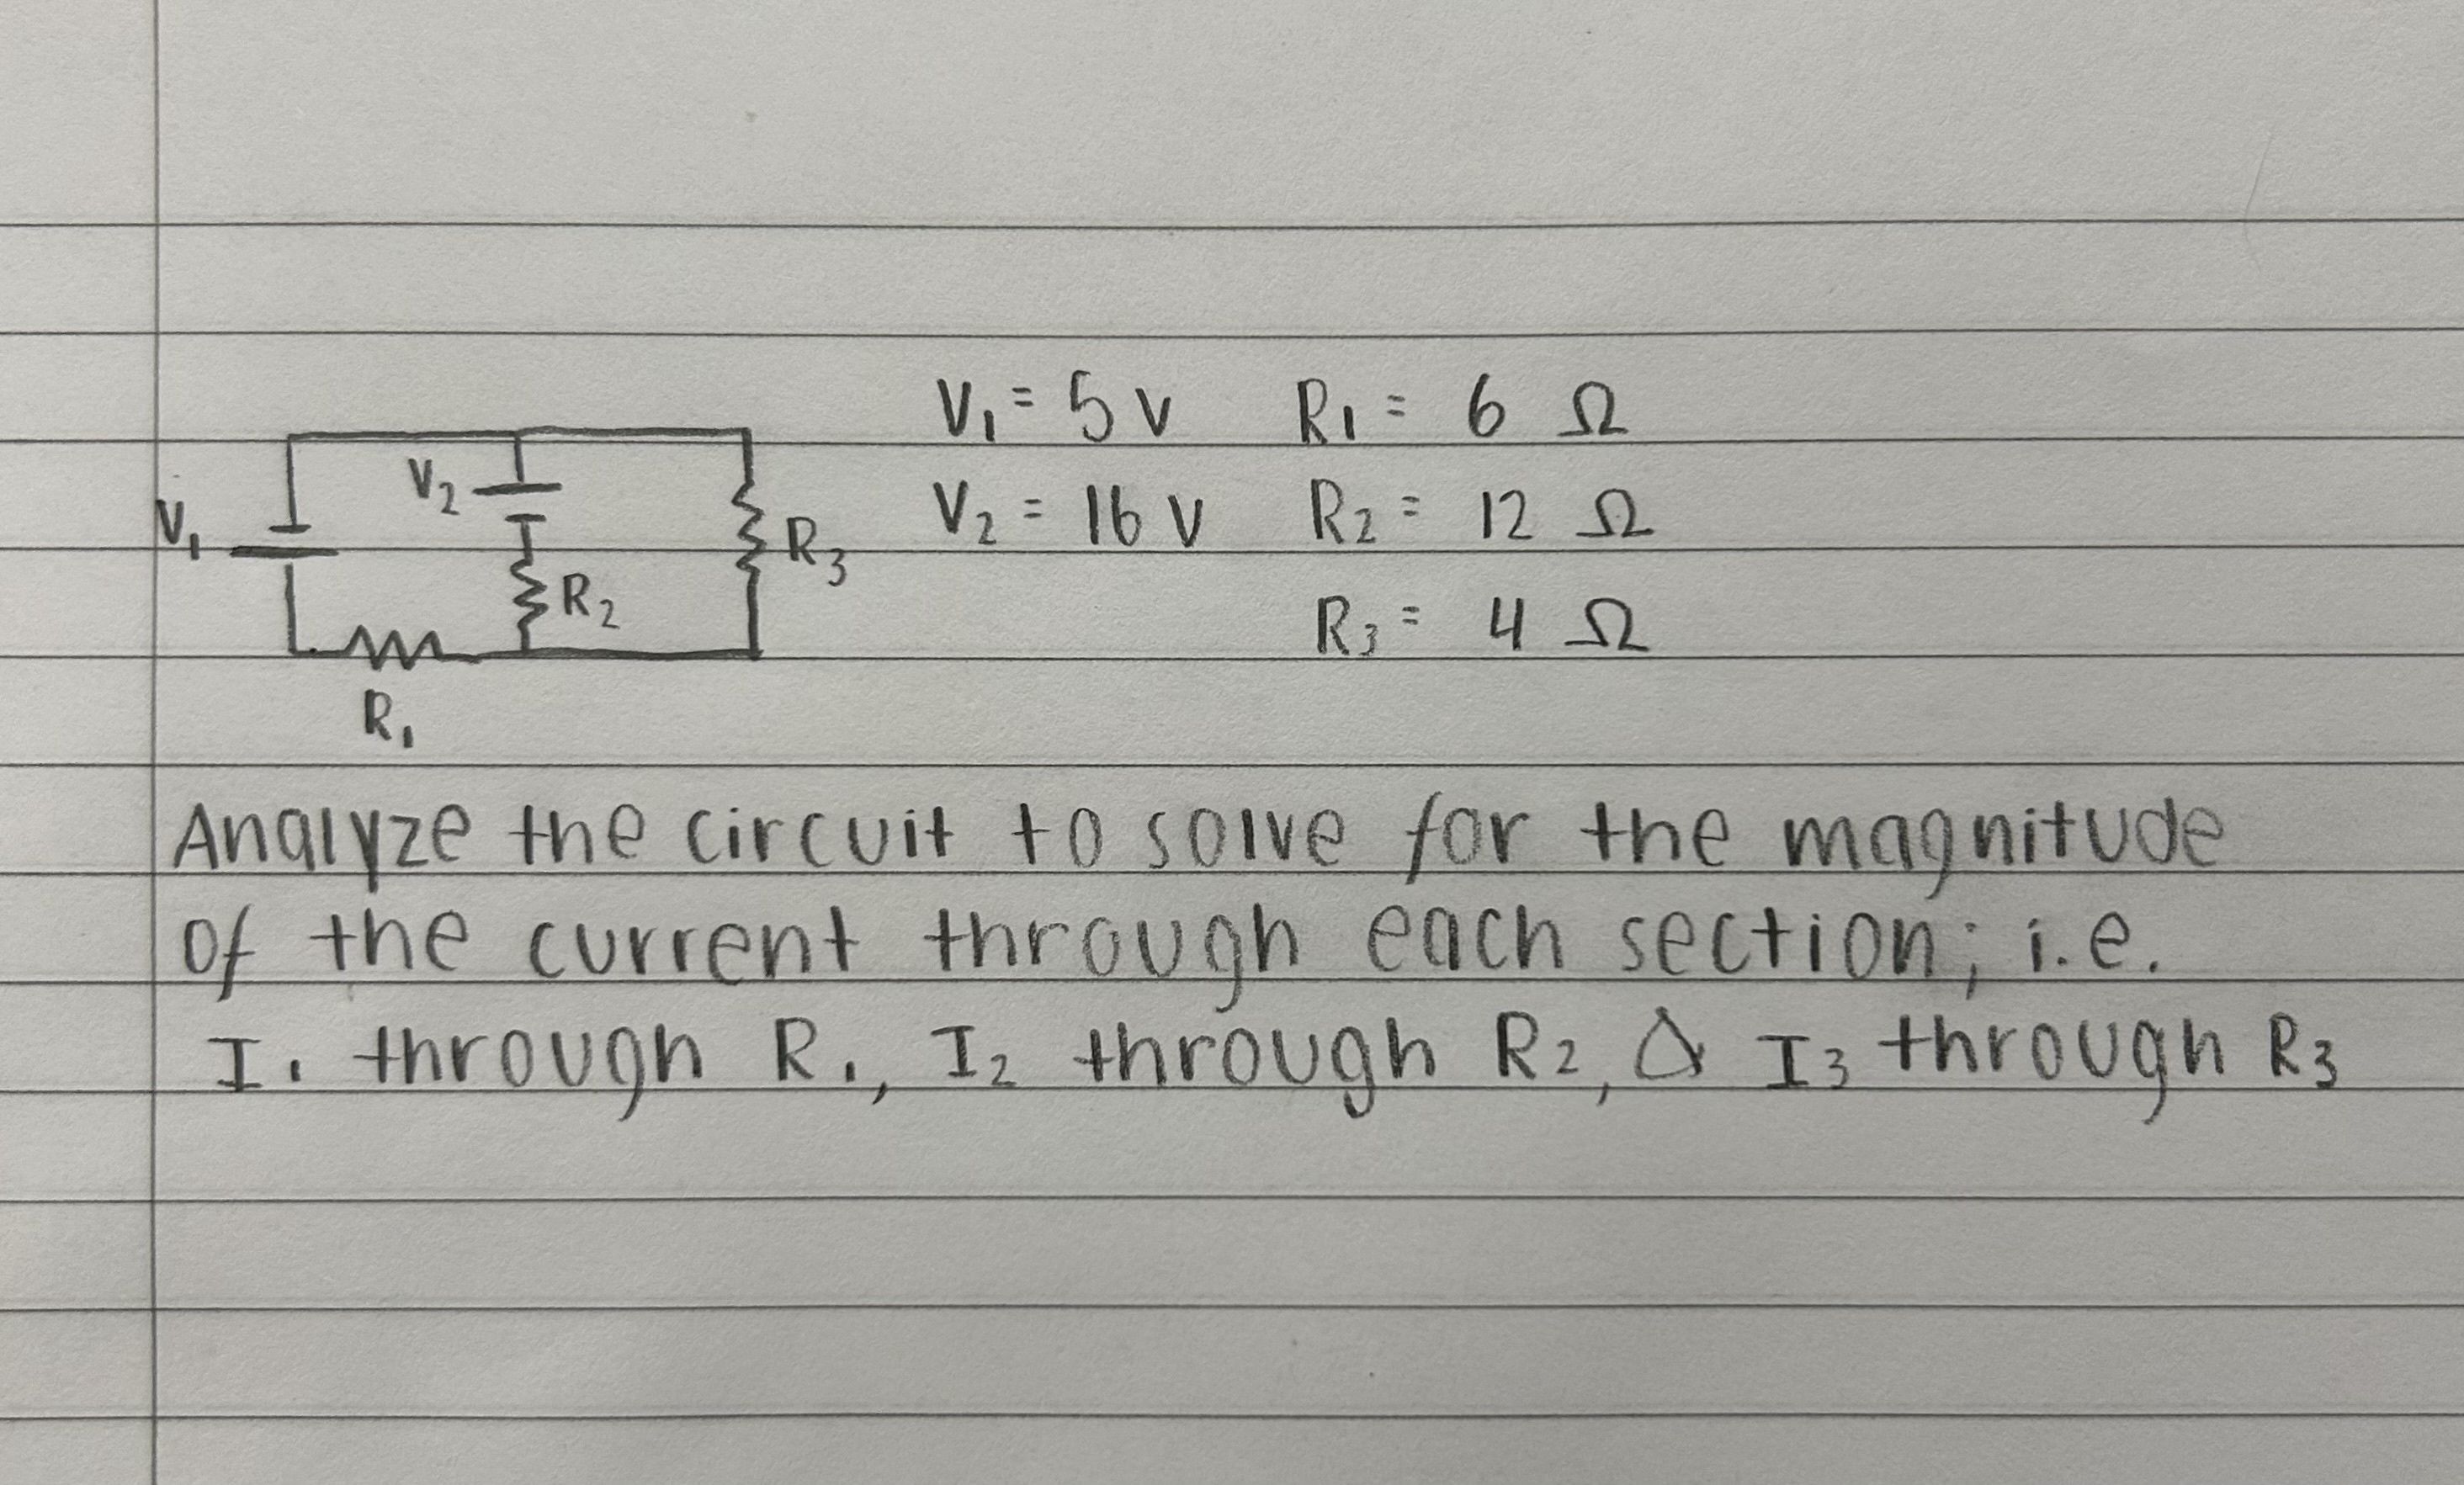 V₁ = 5 V R₁ = 6 Ω
V₂ = 16 V R₂ = 12 Ω
R₃ = 4 Ω
V₁
V₂
R₂
R₃
R₁
Analyze the circuit to solve for the magnitude
of the current through each section; i.e.
I₁ through R₁, I₂ through R₂, & I₃ through R₃